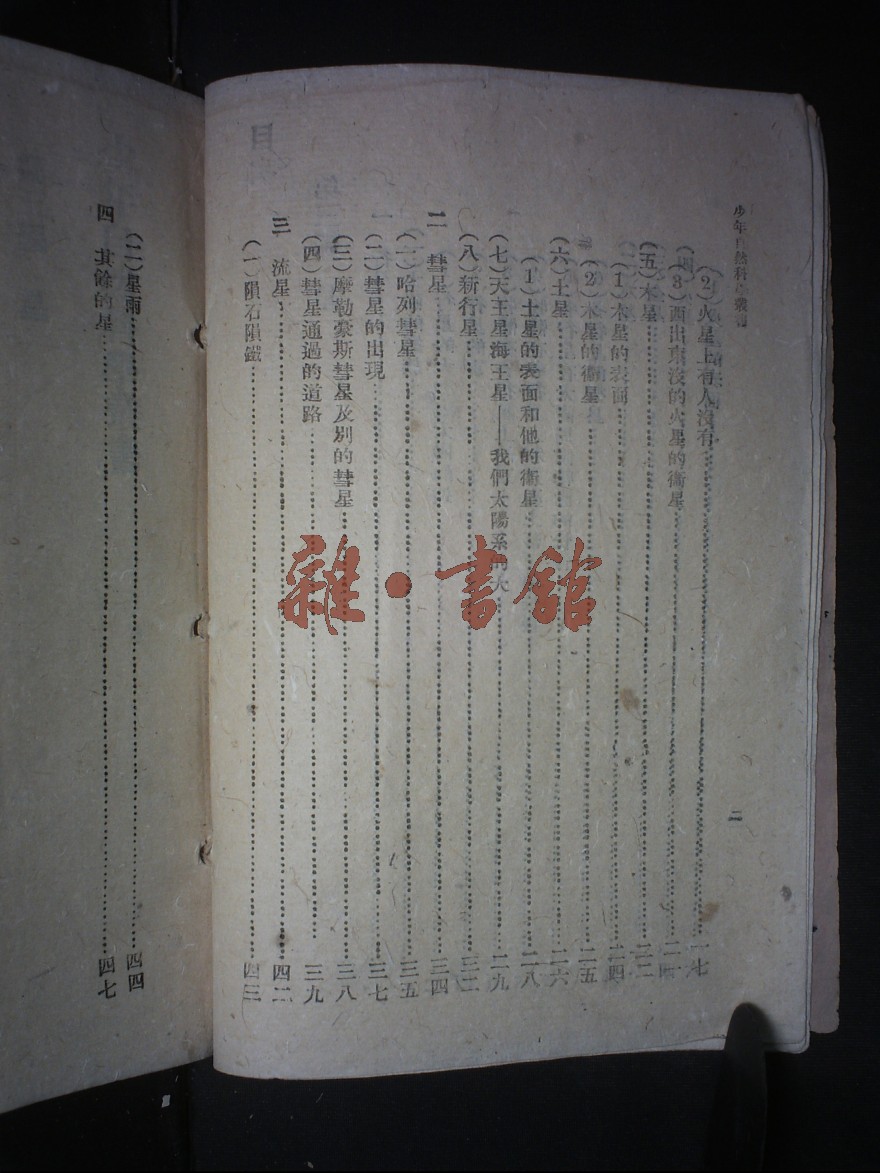 少年自然科學叢書
二
(2)火星上有人沒有……一七
(3)西出東沒的火星的衞星……二一
(五)木星……二二
(1)木星的表面……二四
(2)木星的衞星……二五
(六)土星……二六
(1)土星的表面和他的衞星……二八
(七)天王星海王星——我們太陽系的大……二九
(八)新行星……三二
二 彗星……三四
(一)哈列彗星……三五
(二)彗星的出現……三七
(三)摩勒豪斯彗星及別的彗星……三八
(四)彗星通過的道路……三九
三 流星……四二
(一)隕石隕鐵……四三
(二)星雨……四四
四 其餘的星……四七
雜·書館